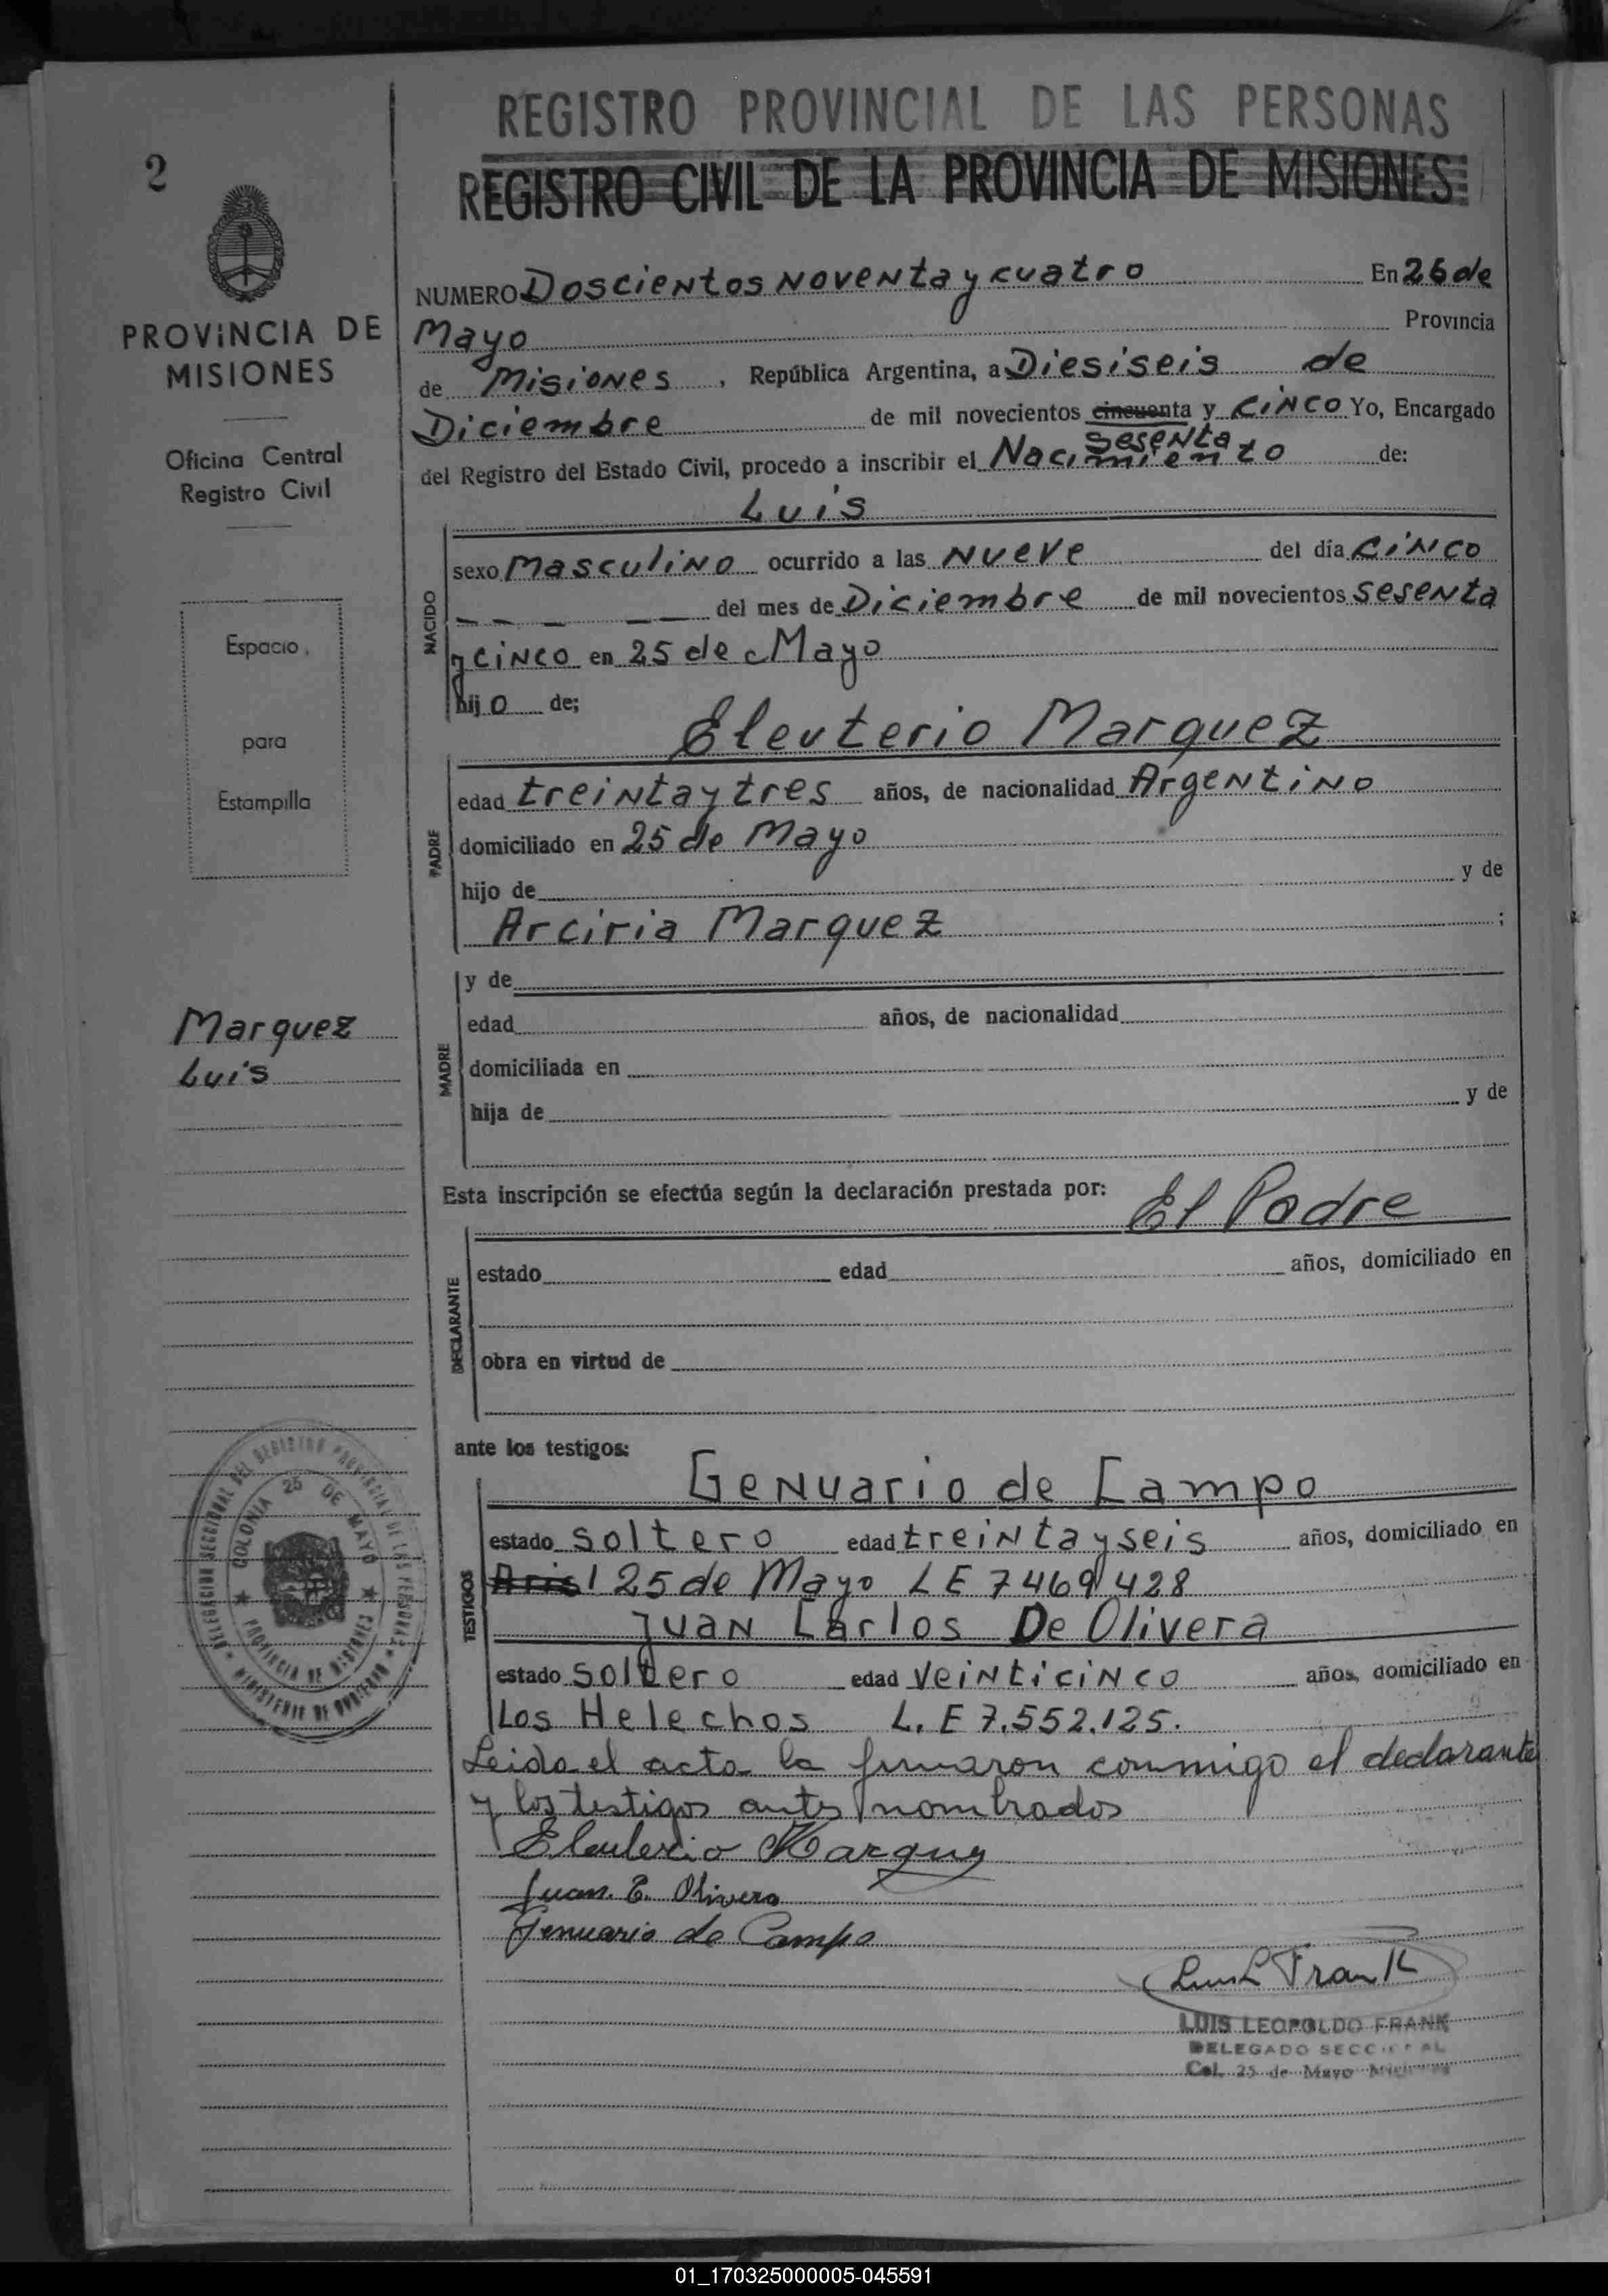 REGISTRO PROVINCIAL DE LAS PERSONAS
REGISTRO CIVIL DE LA PROVINCIA DE MISIONES
2
PROVINCIA DE
MISIONES
Oficina Central
Registro Civil
Espacio
para
Estampilla
Marquez
Luis
NUMERO Doscientos Noventa y cuatro En 26 de
Mayo Provincia
de Misiones, República Argentina, a Diesiseis de
Diciembre de mil novecientos cincuenta y CINCO Yo, Encargado
sesenta
del Registro del Estado Civil, procedo a inscribir el Nacimiento de:
Luis
NACIDO
sexo Masculino ocurrido a las Nueve del día CINCO
del mes de Diciembre de mil novecientos sesenta
y CINCO en 25 de Mayo
hijo de;
Eleuterio Marquez
PADRE
edad treinta y tres años, de nacionalidad Argentino
domiciliado en 25 de Mayo
hijo de y de
Arciria Marquez ;
MADRE
y de
edad años, de nacionalidad
domiciliada en
hija de y de
Esta inscripción se efectúa según la declaración prestada por: El Padre
DECLARANTE
estado edad años, domiciliado en
obra en virtud de
ante los testigos:
TESTIGOS
Genuario de Campo
estado soltero edad treinta y seis años, domiciliado en
25 de Mayo LE 7469428
Juan Carlos De Olivera
estado soltero edad veinticinco años, domiciliado en
Los Helechos L. E 7.552.125.
Leida el acta la firmaron conmigo el declarante
y los testigos antes nombrados
Eleuterio Marquez
Juan. C. Olivera
Genuario de Campo
Luis L Frank
LUIS LEOPOLDO FRANK
DELEGADO SECCIONAL
Col. 25 de Mayo Misiones
DELEGACION SECCIONAL DEL REGISTRO PROVINCIAL DE LAS PERSONAS
COLONIA 25 DE MAYO
PROVINCIA DE MISIONES
MINISTERIO DE GOBIERNO
01_170325000005-045591